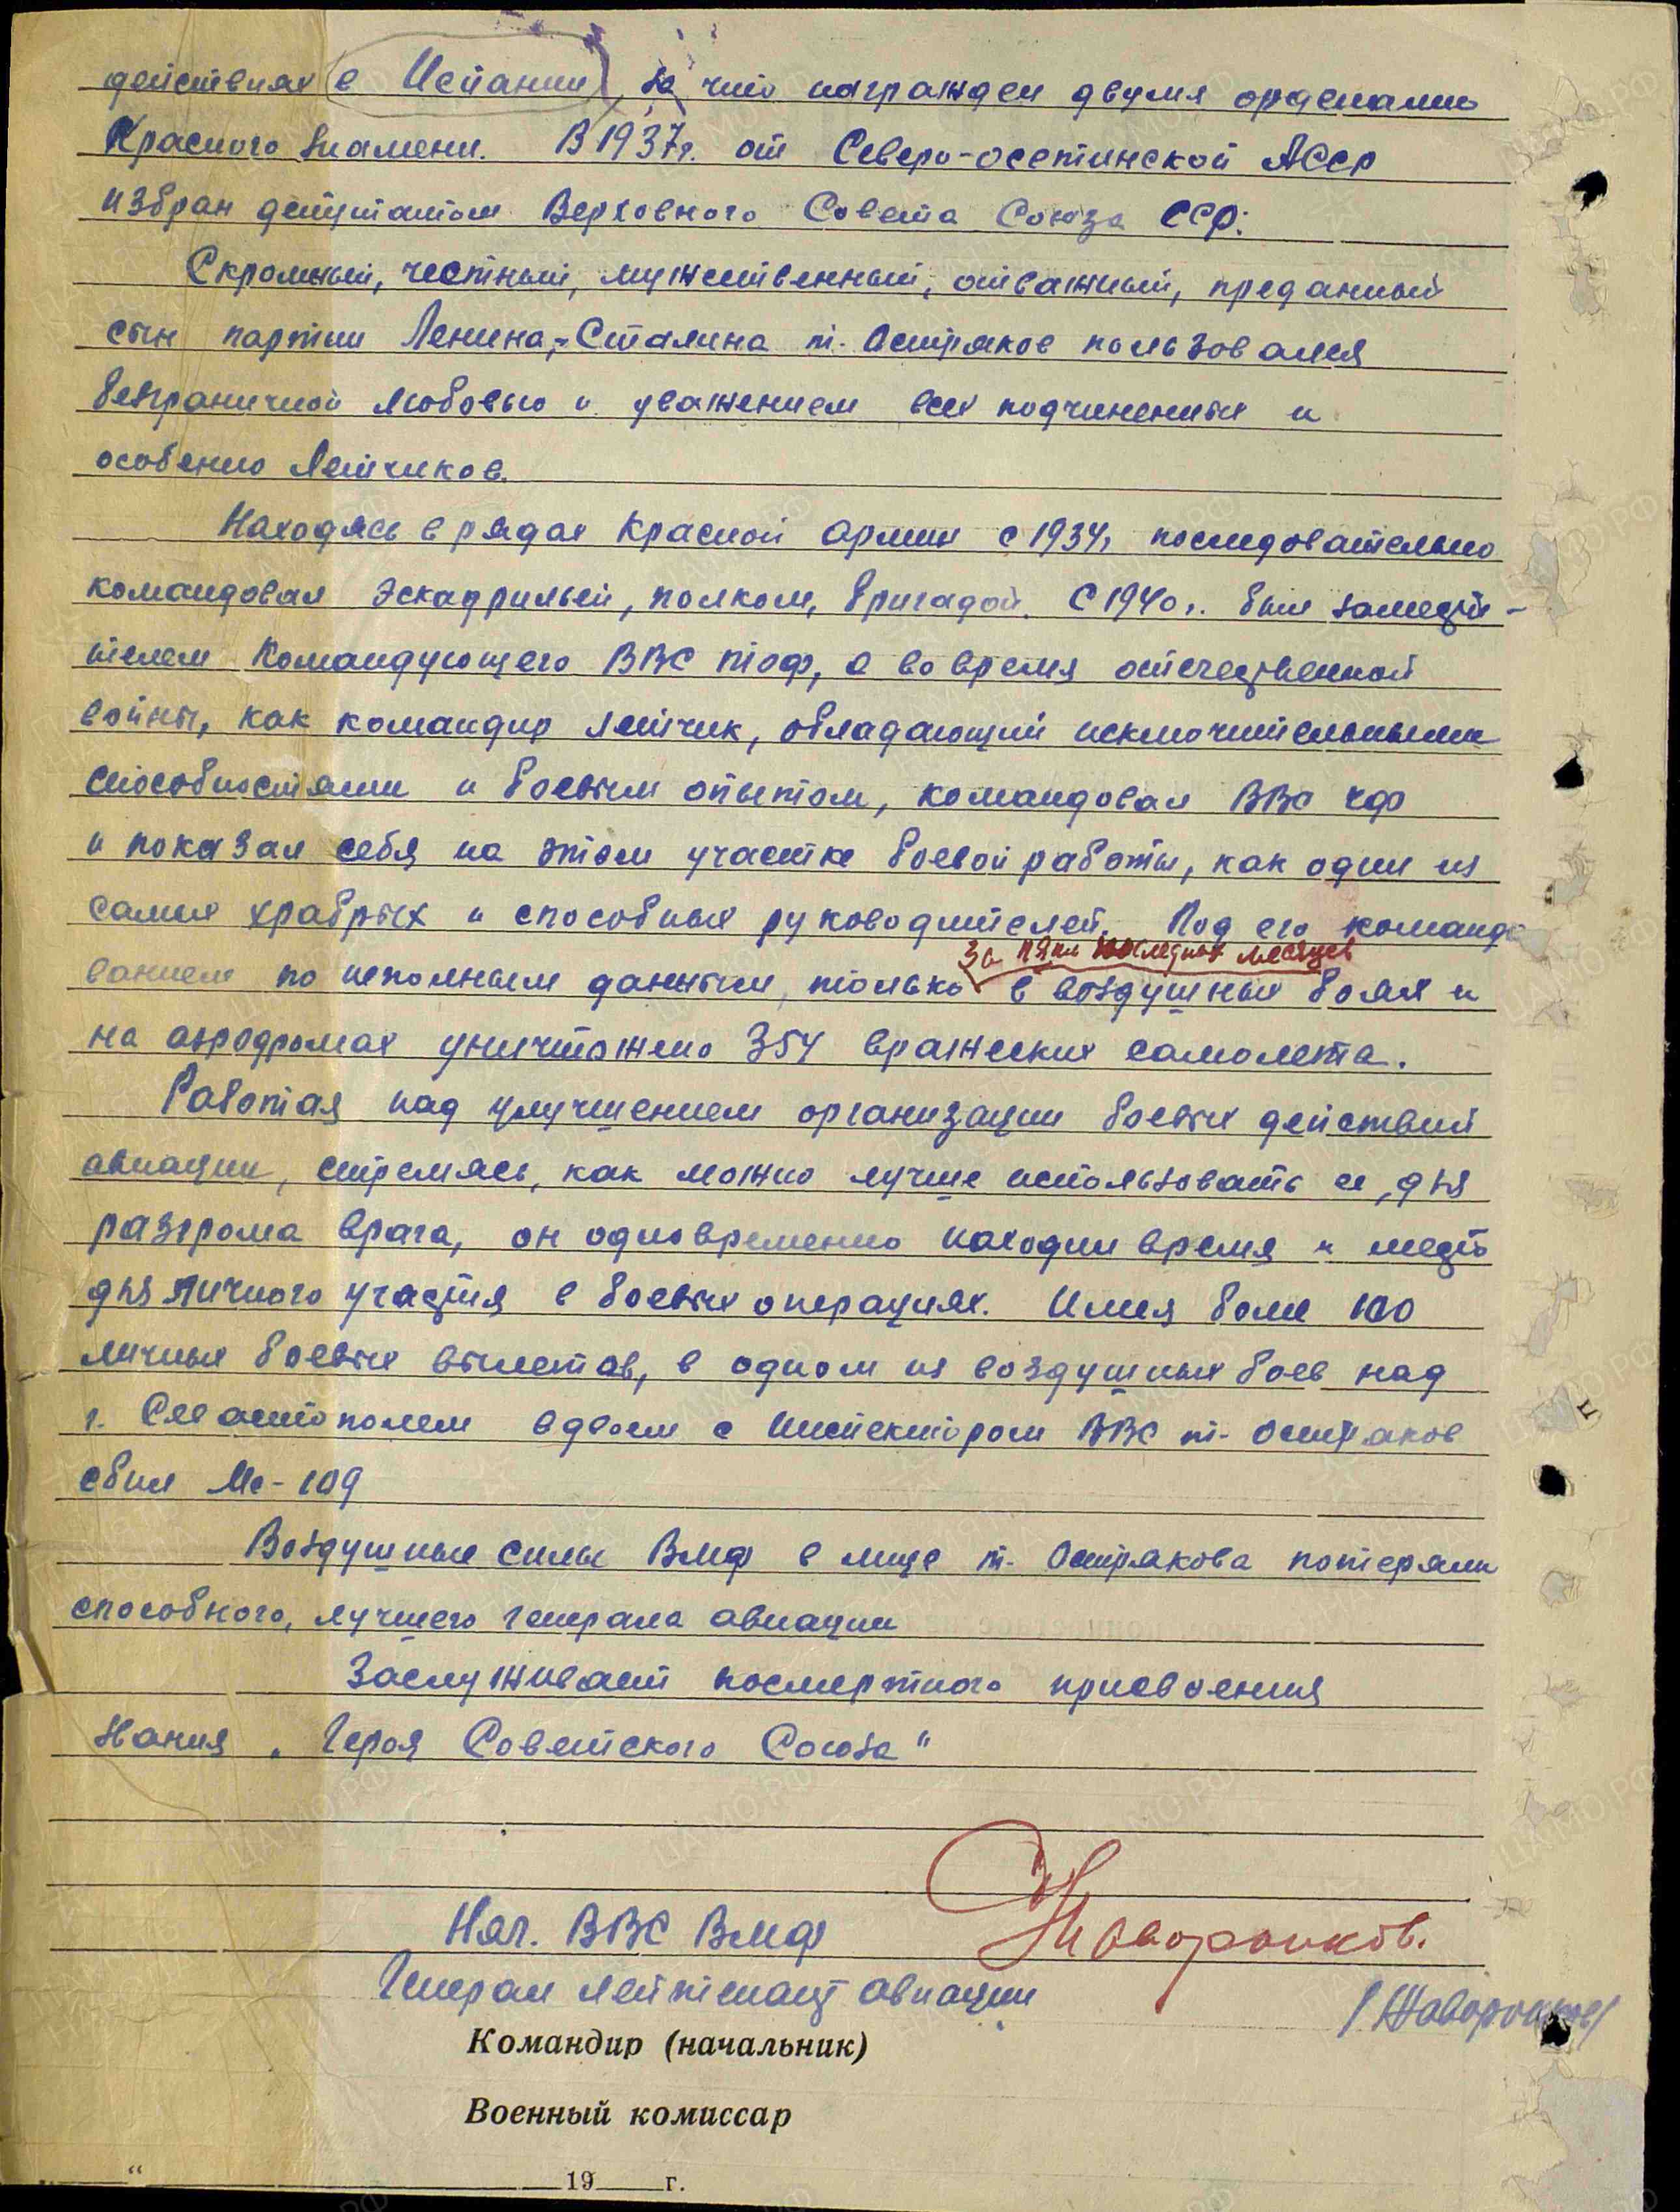 действиях в Испании, за что награжден двумя орденами
Красного Знамени. В 1937г. от Северо-осетинской АССР
избран депутатом Верховного Совета Союза ССР.
Скромный, честный, мужественный, отважный, преданный
сын партии Ленина-Сталина т. Остряков пользовался
безграничной любовью и уважением всех подчиненных и
особенно Летчиков.
Находясь в рядах Красной Армии с 1934г. последовательно
командовал эскадрильей, полком, бригадой. С 1940г. был замести-
телем Командующего ВВС ТОФ, а во время отечественной
войны, как командир летчик, обладающий исключительными
способностями и боевым опытом, командовал ВВС ЧФ
и показал себя на этом участке боевой работы, как один из
самых храбрых и способных руководителей. Под его командо
за пять последних месяцев
ванием по неполным данным, только в воздушных боях и
на аэродромах уничтожено 354 вражеских самолета.
Работая над улучшением организации боевых действий
авиации, стремясь, как можно лучше использовать ее, для
разгрома врага, он одновременно находил время и место
для личного участия в боевых операциях. Имея более 100
личных боевых вылетов, в одном из воздушных боев над
г. Севастополем вдвоем с Инспектором ВВС т. Остряков
сбил Ме-109
Воздушные силы ВМФ в лице т. Острякова потеряли
способного, лучшего генерала авиации
Заслуживает посмертного присвоения
звания „Героя Советского Союза"
Нач. ВВС ВМФ
Жаворонков.
Генерал лейтенант авиации
/Жаворонков/
Командир (начальник)
Военный комиссар
“ 19 г.
ЦАМО.РФ